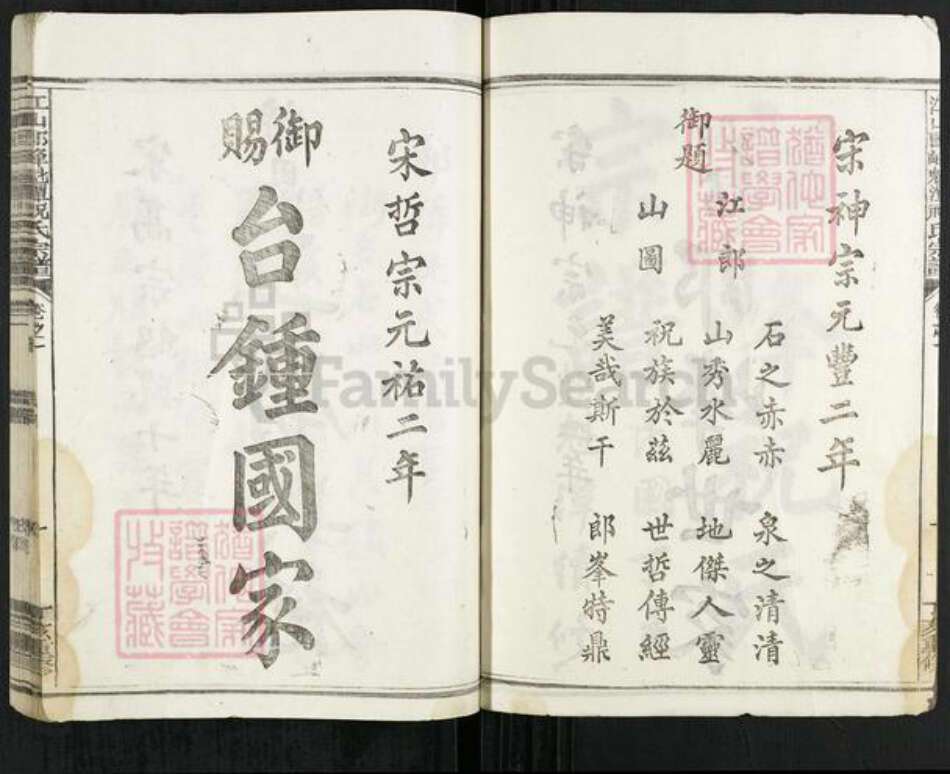 宋神宗元豐二年
御題
江郎
山圖
石之赤赤 泉之清清
山秀水麗 地傑人靈
祝族於茲 世哲傳經
美哉斯干 郎峯特鼎
宋哲宗元祐二年
御
賜
台鍾國家
FamilySearch